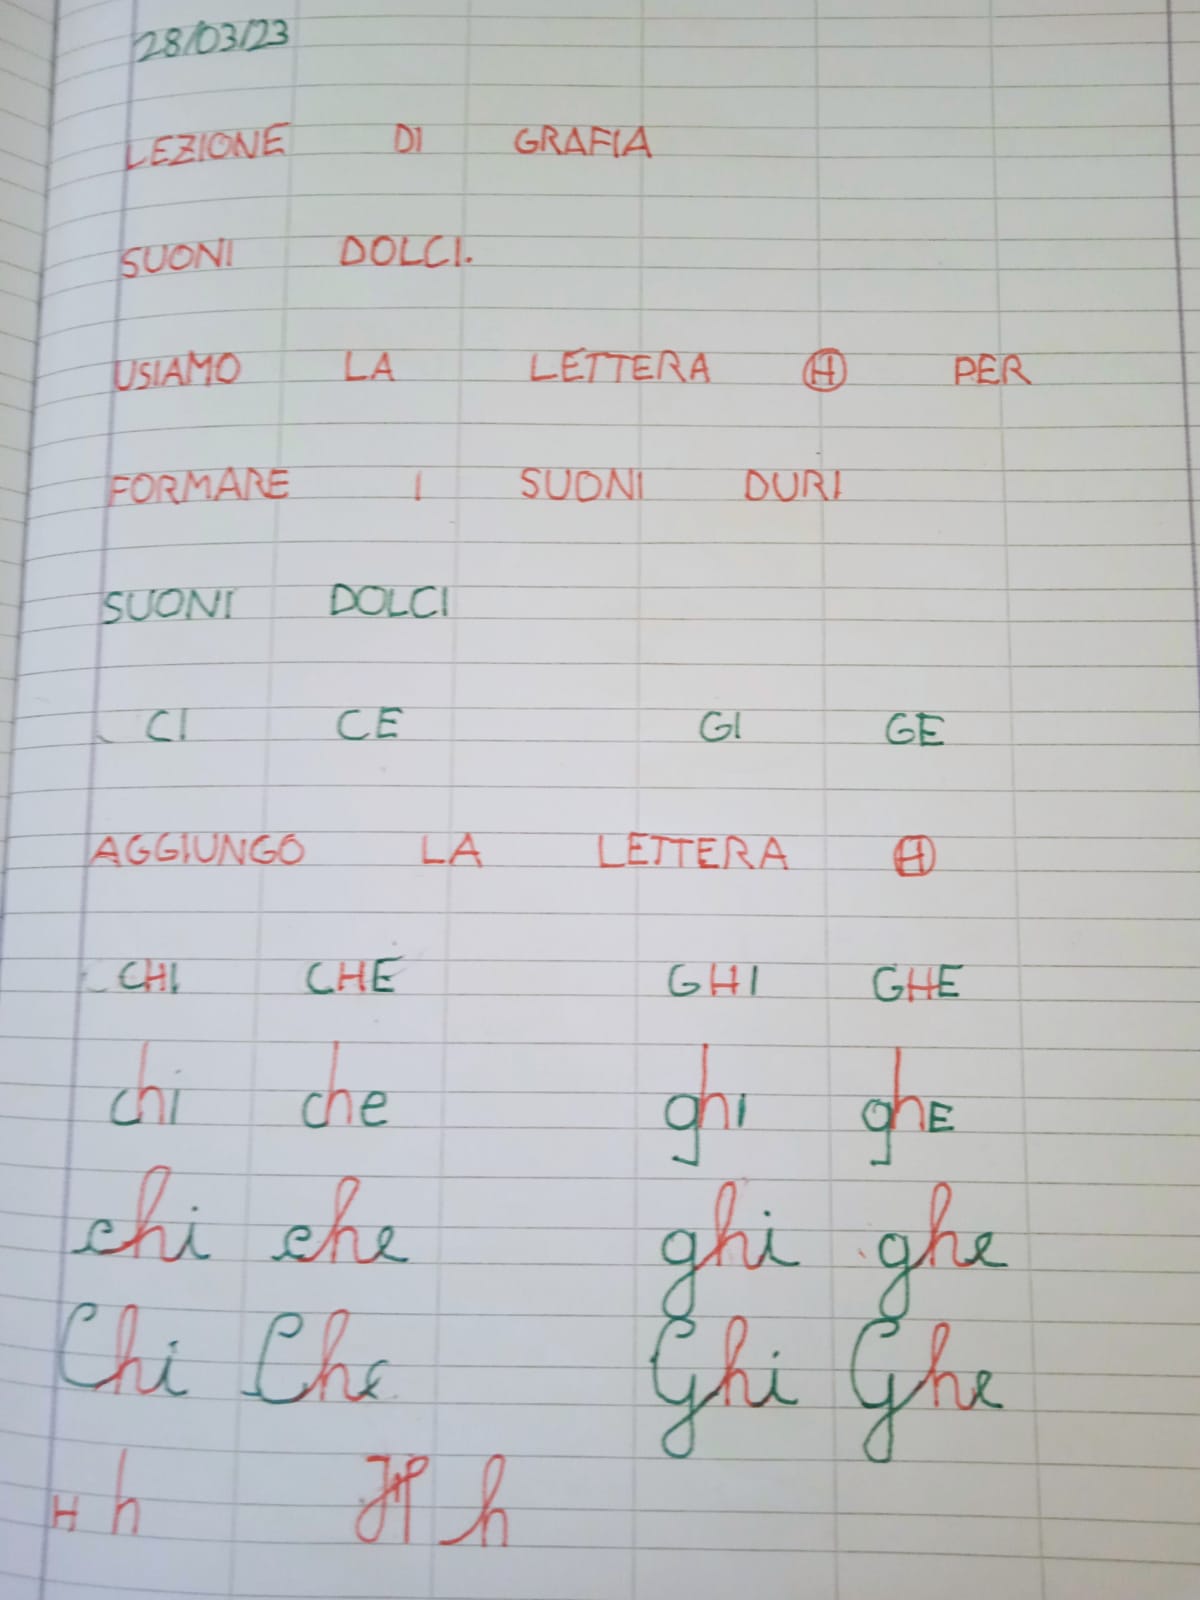 28/03/23
LEZIONE DI GRAFIA
SUONI DOLCI.
USIAMO LA LETTERA H PER
FORMARE I SUONI DURI
SUONI DOLCI
CI CE GI GE
AGGIUNGO LA LETTERA H
CHI CHE GHI GHE
chi che ghI ghE
chi che ghi ghe
Chi Che Ghi Ghe
H h H h